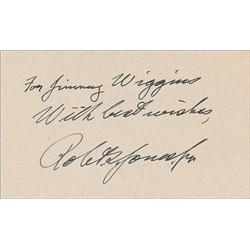 For Jimmy Wiggins
With best wishes,
Robt. T. Jones, Jr.